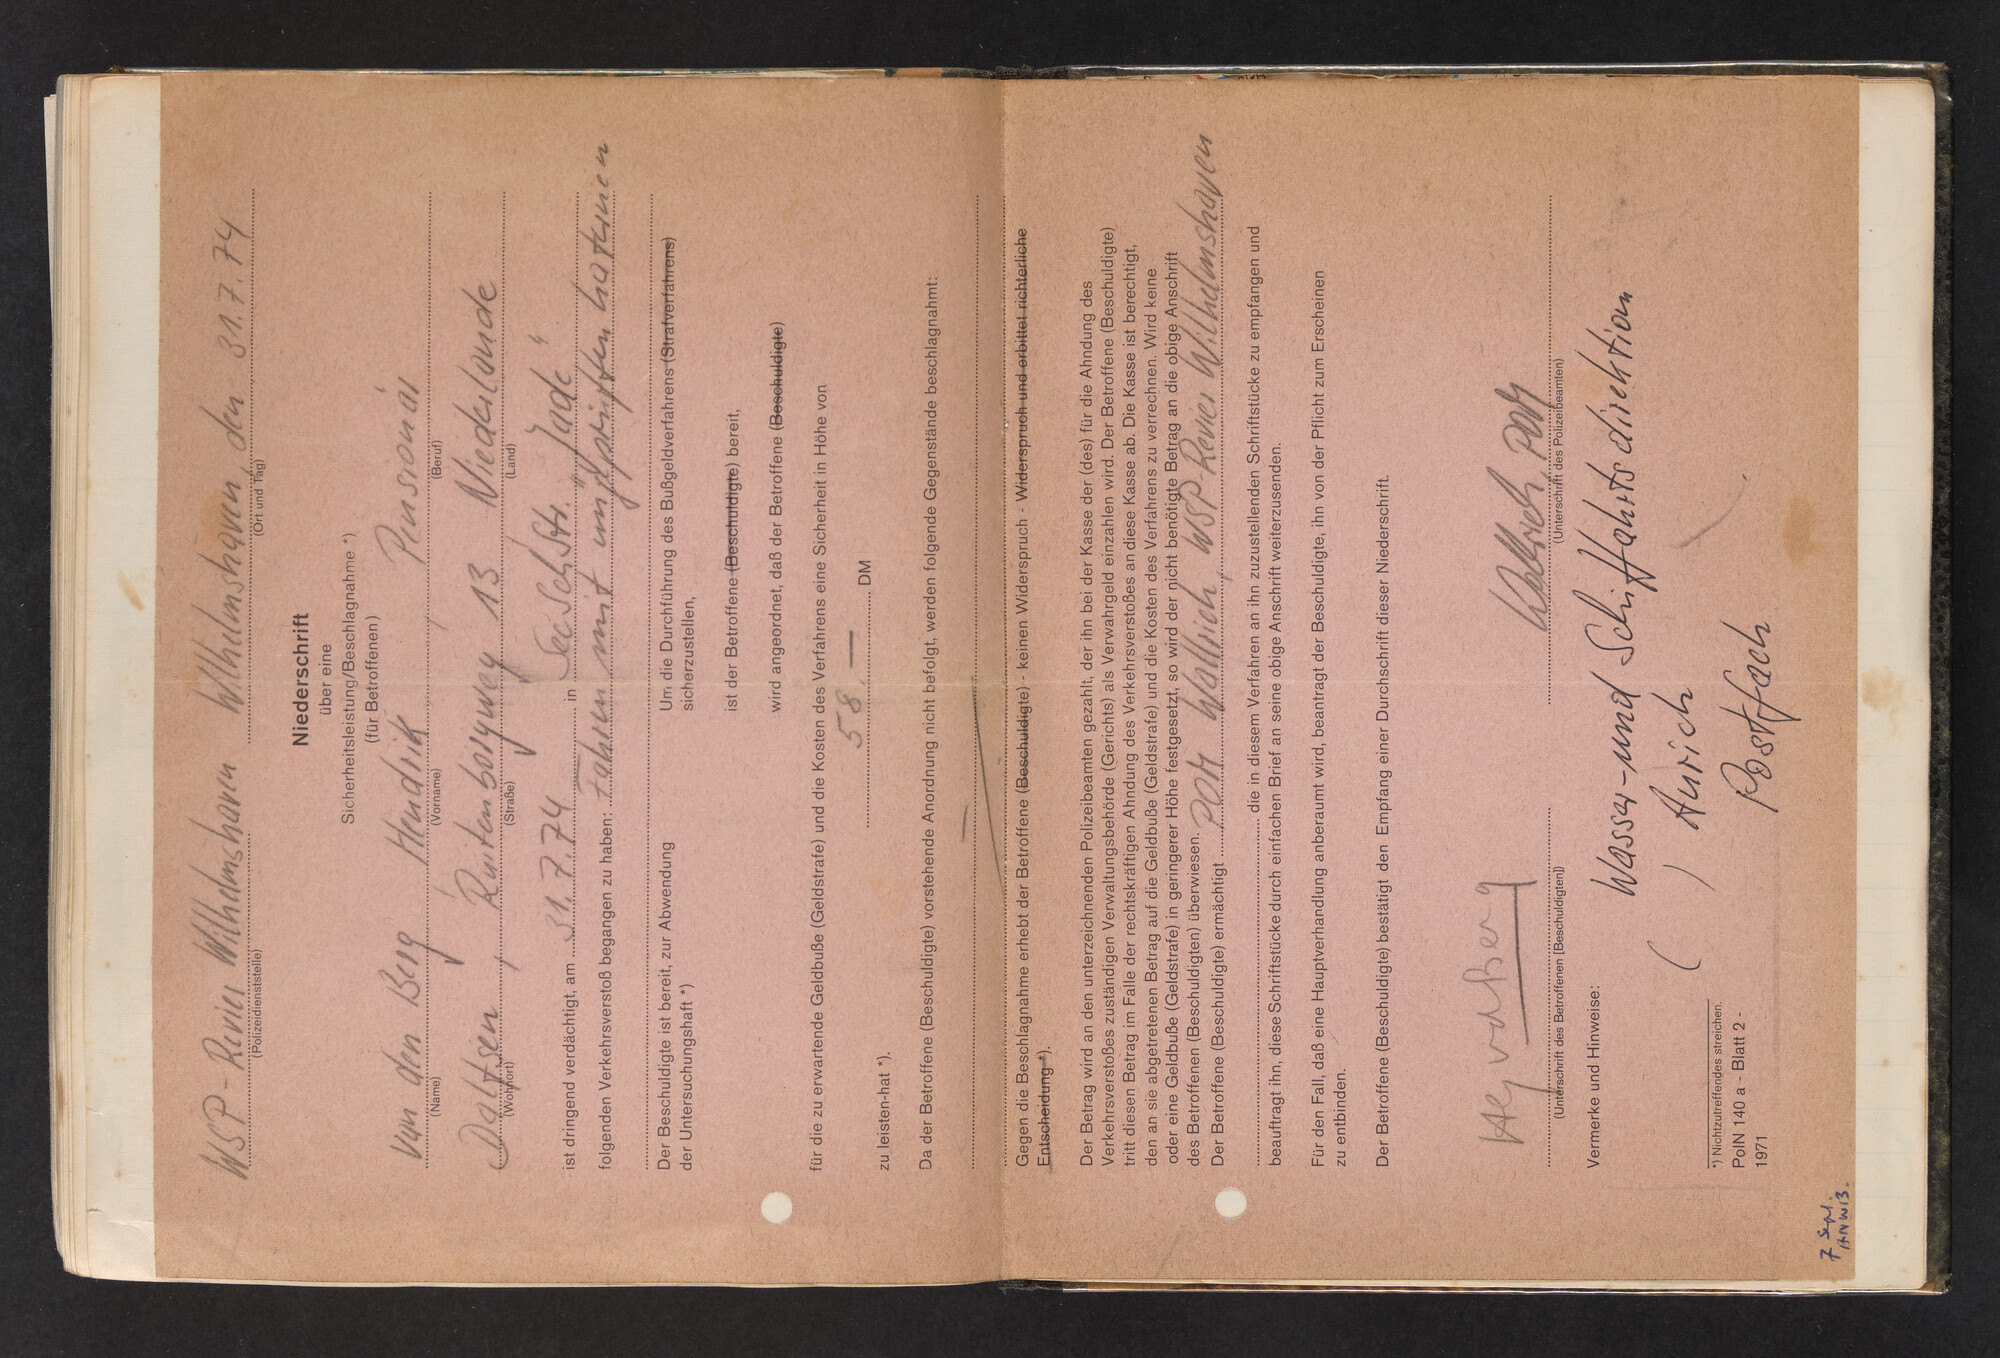 WSP-Revier Wilhelmshaven Wilhelmshaven, den 31.7.74
(Polizeidienststelle) (Ort und Tag)
Niederschrift
über eine
Sicherheitsleistung/Beschlagnahme *)
(für Betroffenen)
Van den Berg, Hendrik, Pensionär
(Name) (Vorname) (Beruf)
Dalfsen, Ruitenborgweg 13 Niederlande
(Wohnort) (Straße) (Land)
ist dringend verdächtigt, am 31.7.74 in SeeSchStr. "Jade"
folgenden Verkehrsverstoß begangen zu haben: Fahren mit ungeprüften Laternen
Der Beschuldigte ist bereit, zur Abwendung
der Untersuchungshaft *)
Um die Durchführung des Bußgeldverfahrens (Strafverfahrens)
sicherzustellen,
ist der Betroffene (Beschuldigte) bereit,
wird angeordnet, daß der Betroffene (Beschuldigte)
für die zu erwartende Geldbuße (Geldstrafe) und die Kosten des Verfahrens eine Sicherheit in Höhe von
58,— DM
zu leisten-hat *).
Da der Betroffene (Beschuldigte) vorstehende Anordnung nicht befolgt, werden folgende Gegenstände beschlagnahmt:
Gegen die Beschlagnahme erhebt der Betroffene (Beschuldigte) - keinen Widerspruch - Widerspruch und erbittet richterliche
Entscheidung*).
Der Betrag wird an den unterzeichnenden Polizeibeamten gezahlt, der ihn bei der Kasse der (des) für die Ahndung des
Verkehrsverstoßes zuständigen Verwaltungsbehörde (Gerichts) als Verwahrgeld einzahlen wird. Der Betroffene (Beschuldigte)
tritt diesen Betrag im Falle der rechtskräftigen Ahndung des Verkehrsverstoßes an diese Kasse ab. Die Kasse ist berechtigt,
den an sie abgetretenen Betrag auf die Geldbuße (Geldstrafe) und die Kosten des Verfahrens zu verrechnen. Wird keine
oder eine Geldbuße (Geldstrafe) in geringerer Höhe festgesetzt, so wird der nicht benötigte Betrag an die obige Anschrift
des Betroffenen (Beschuldigten) überwiesen.
Der Betroffene (Beschuldigte) ermächtigt POM Wallrich, WSP-Revier Wilhelmshaven
die in diesem Verfahren an ihn zuzustellenden Schriftstücke zu empfangen und
beauftragt ihn, diese Schriftstücke durch einfachen Brief an seine obige Anschrift weiterzusenden.
Für den Fall, daß eine Hauptverhandlung anberaumt wird, beantragt der Beschuldigte, ihn von der Pflicht zum Erscheinen
zu entbinden.
Der Betroffene (Beschuldigte) bestätigt den Empfang einer Durchschrift dieser Niederschrift.
vd Berg Wallrich, POM
(Unterschrift des Betroffenen [Beschuldigten]) (Unterschrift des Polizeibeamten)
Vermerke und Hinweise:
Wasser- und Schiffahrtsdirektion
( ) Aurich
Postfach
*) Nichtzutreffendes streichen.
PolN 140 a - Blatt 2 -
1971
7 sept.